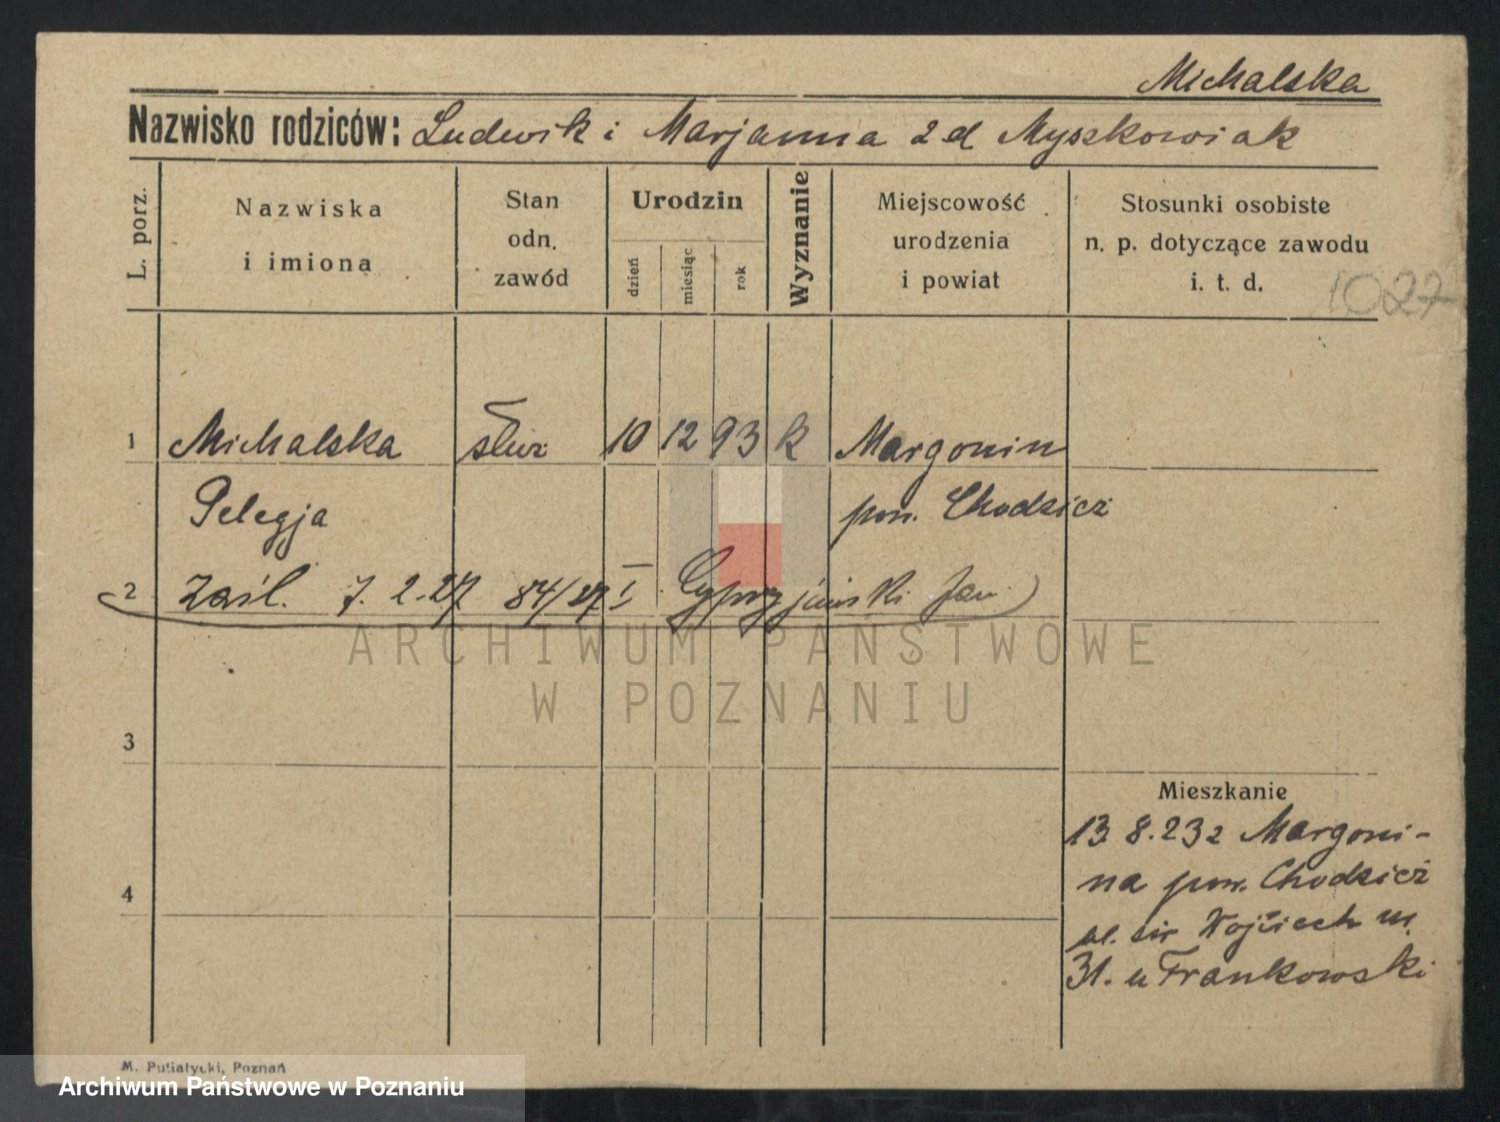 Michalska
Nazwisko rodziców: Ludwik i Marjanna z d Myszkowiak
L. porz.
Nazwiska
i imiona
Stan
odn.
zawód
Urodzin
dzień
miesiąc
rok
Wyznanie
Miejscowość
urodzenia
i powiat
Stosunki osobiste
n. p. dotyczące zawodu
i. t. d.
1027
1 Michalska służ 10 12 93 k Margonin
Pelegja pow. Chodzież
2 Zaśl. 7. 2. 27 84/27 I Cyprzjański Jan)
ARCHIWUM PAŃSTWOWE
W POZNANIU
3
Mieszkanie
13. 8. 23 z Margoni-
na pow. Chodzież
4
Wojciech
31. u Frankowski
M. Putiatycki, Poznań
Archiwum Państwowe w Poznaniu